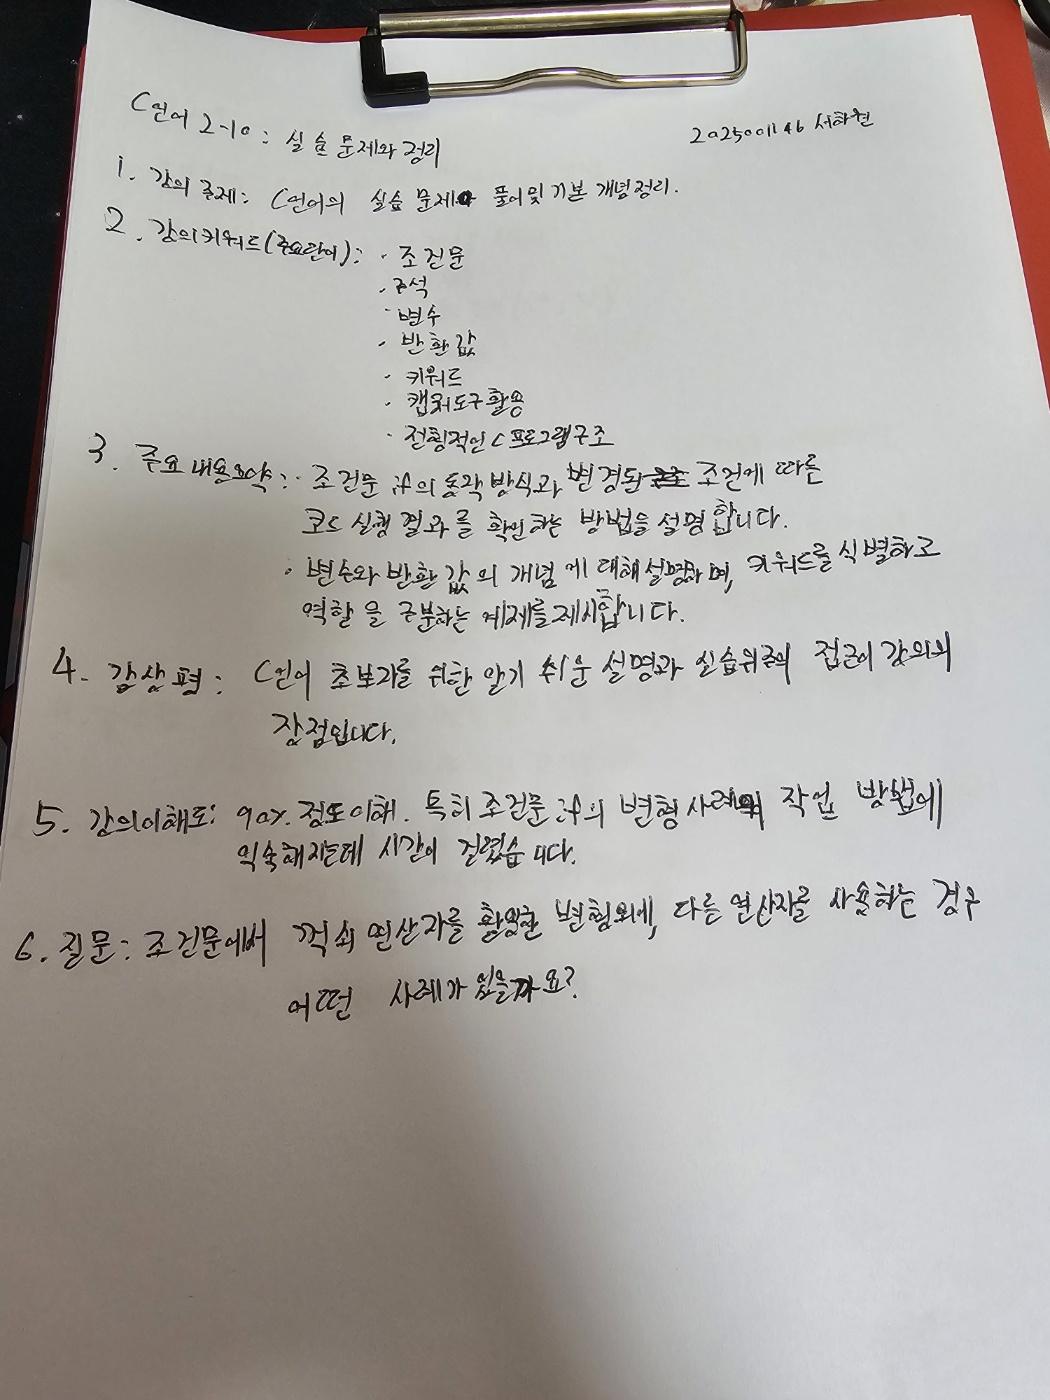 C언어 2-10: 실습 문제와 정리
202500146 서하원
1. 강의 주제: C언어의 실습 문제 풀이 및 기본 개념 정리.
2. 강의키워드(주요단어): · 조건문
· 주석
· 변수
· 반환값
· 키워드
· 캡춰도구활용
· 전형적인 C 프로그램구조
3. 주요 내용요약: · 조건문 if의 동작 방식과 변경된 조건에 따른
코드 실행 결과를 확인하는 방법을 설명합니다.
· 변수와 반환 값의 개념에 대해 설명하며, 키워드를 식별하고
역할을 구분하는 예제를 제시합니다.
4. 감상평: C언어 초보자를 위한 알기 쉬운 설명과 실습위주의 접근이 강의의
장점입니다.
5. 강의이해도: 90% 정도이해. 특히 조건문 if의 변형 사례의 작업 방법에
익숙해지는데 시간이 걸렸습니다.
6. 질문: 조건문에서 꺽쇠 연산자를 활용한 변형외에, 다른 연산자를 사용하는 경우
어떤 사례가 있을까요?